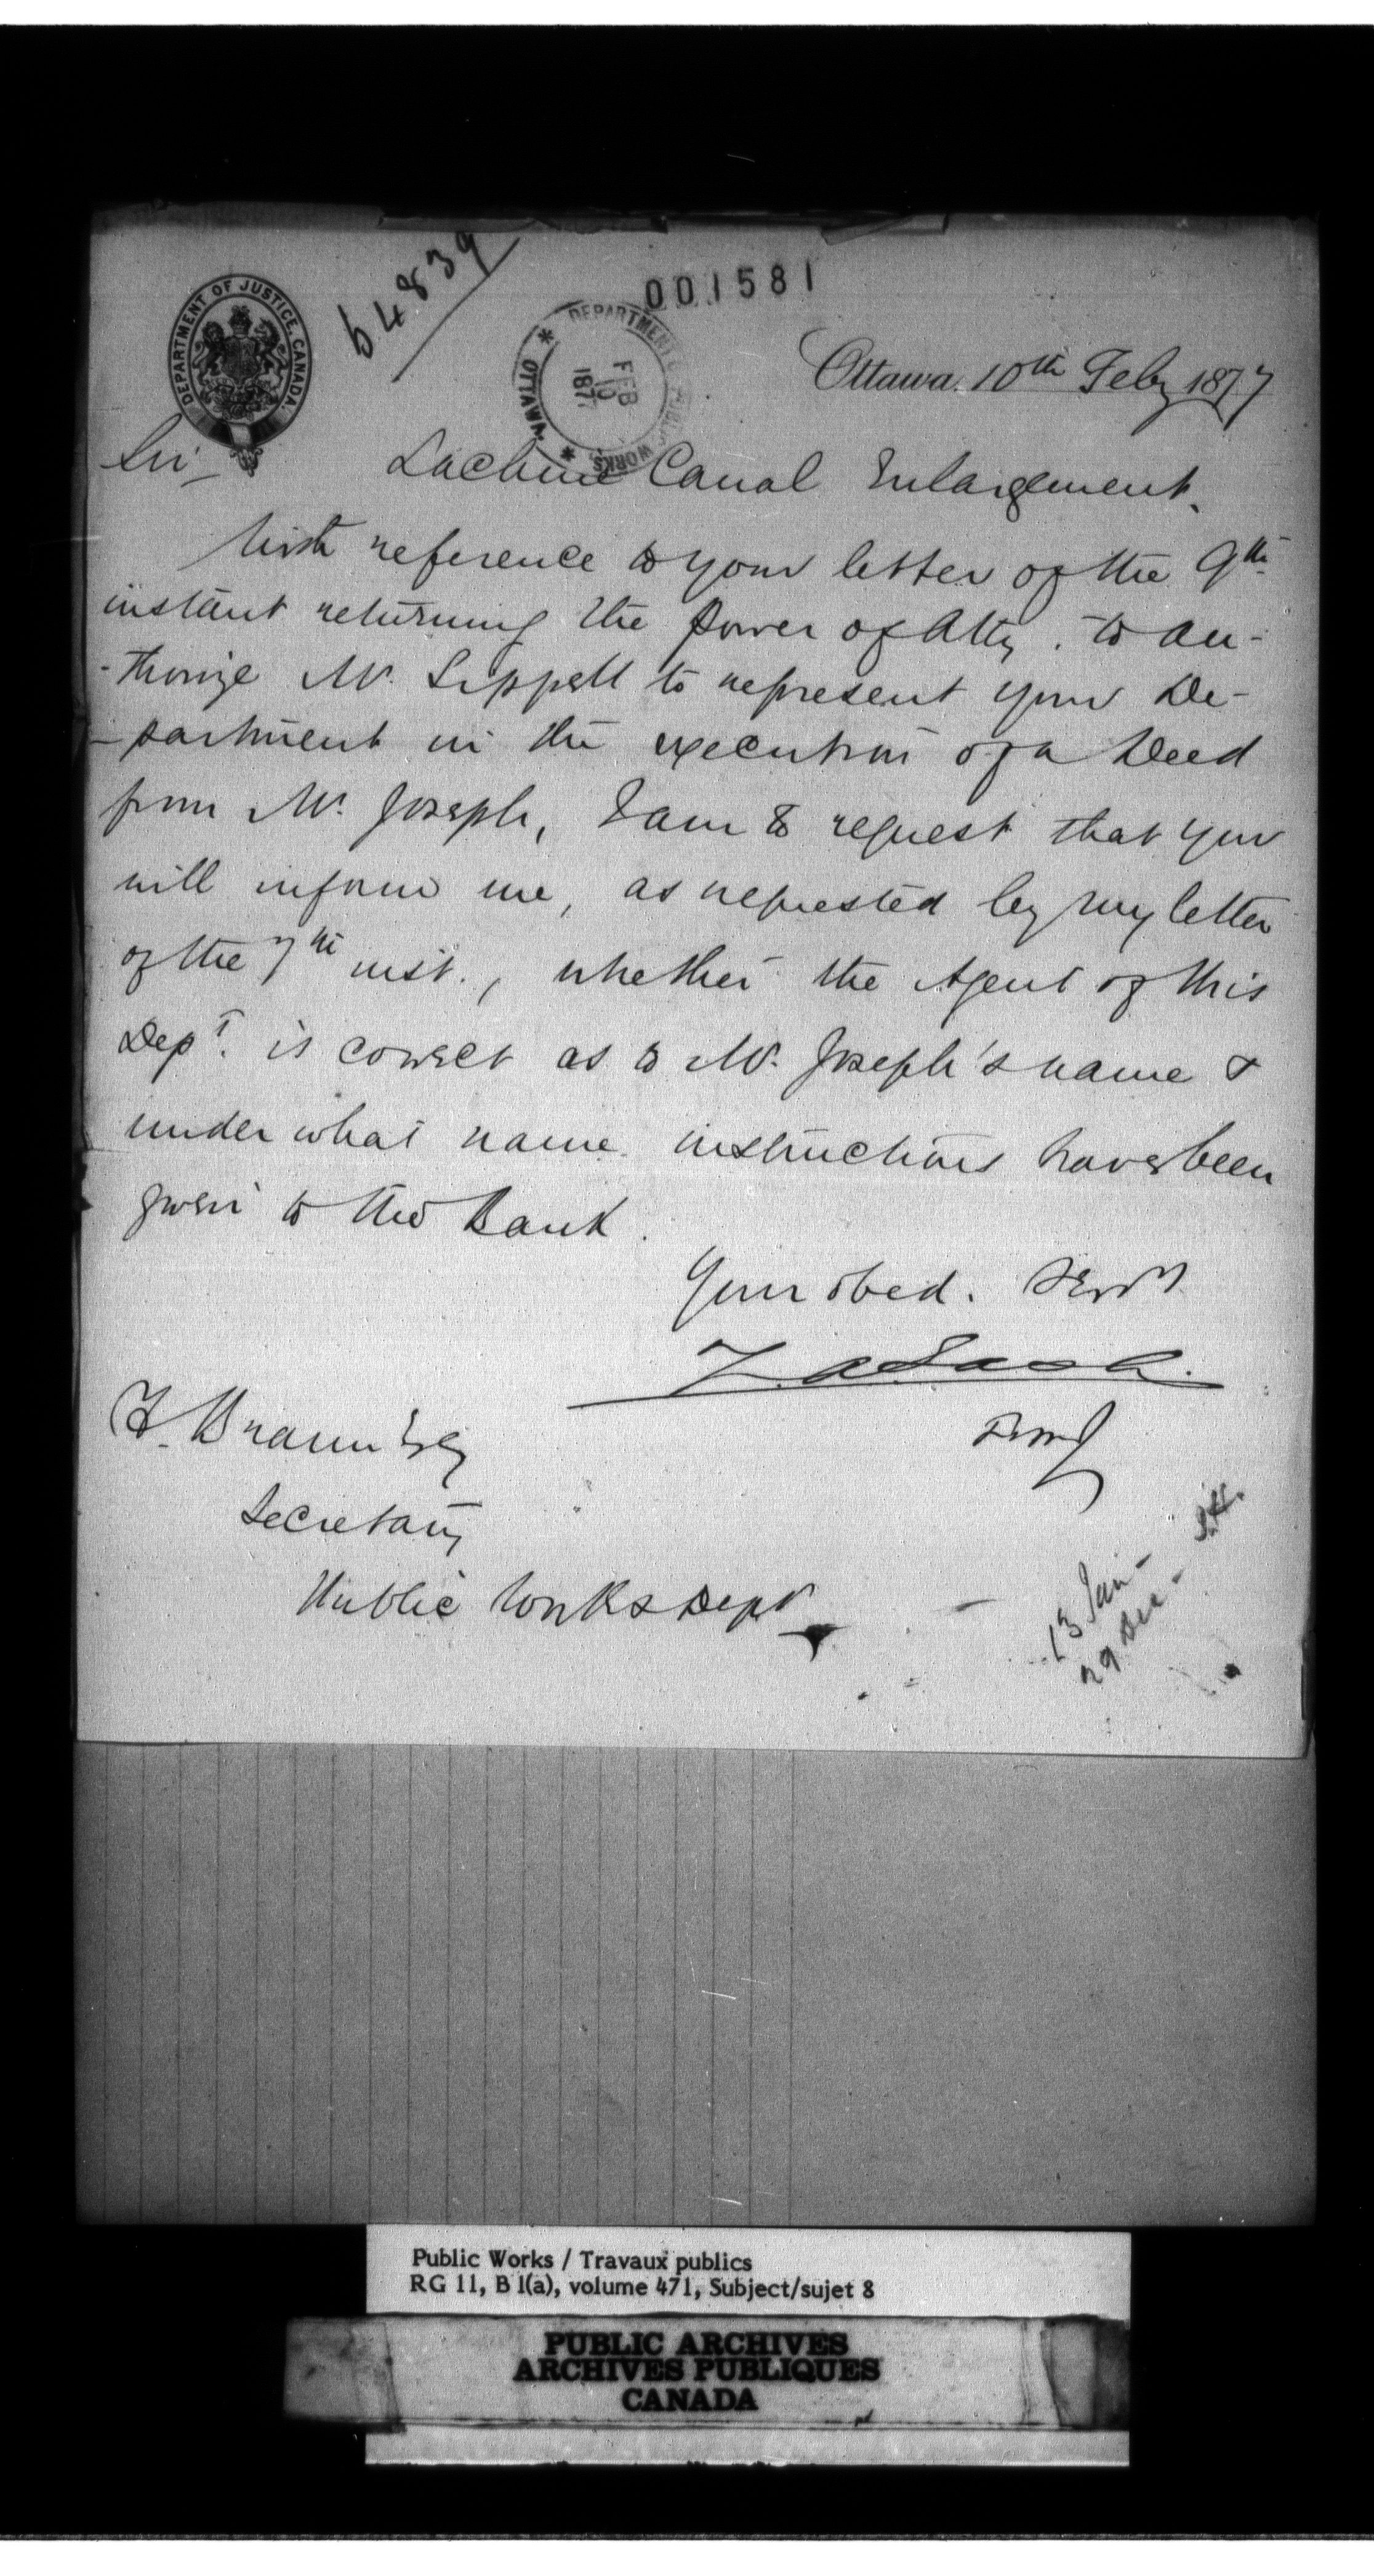 64839
001581
DEPARTMENT OF JUSTICE, CANADA.
DEPARTMENT OF PUBLIC WORKS * OTTAWA *
FEB
10
1877
Ottawa. 10th Feby 1877
Sir
Lachine Canal Enlargement.
With reference to your letter of the 9th
instant returning the power of Atty. to au-
-thorize Mr. Sippell to represent your De-
-partment in the execution of a Deed
from Mr. Joseph, I am to request that you
will inform me, as requested by my letter
of the 7th inst., whether the Agent of this
Dept. is correct as to Mr. Joseph's name &
under what name instructions have been
given to the Bank.
Your obed. Servt
Z. A. Lash.
F. Braun Esq
Secretary
Public Works Dept
13 Jan -
29 Dec -
Public Works / Travaux publics
RG 11, B 1(a), volume 471, Subject/sujet 8
PUBLIC ARCHIVES
ARCHIVES PUBLIQUES
CANADA